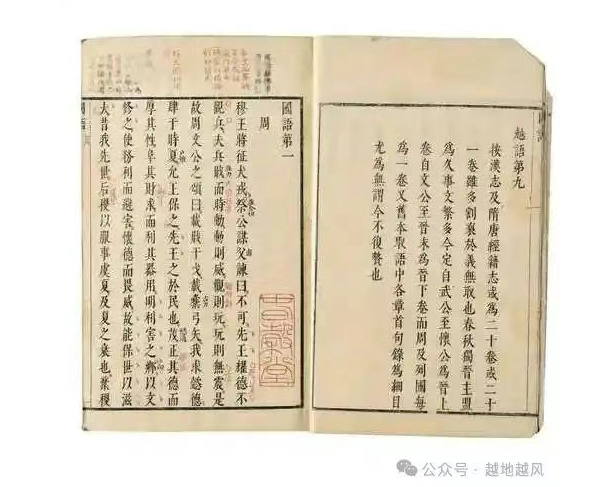 越語第九
按漢志及隋唐經籍志或為二十卷或二十
一卷雖多割裂於義無取也春秋獨晉主盟
為久事文繁多今定自武公至懷公為晉上
卷自文公至晉末為晉下卷而周及列國每
為一卷又舊本取語中各章首句錄為細目
尤為無謂今不復贅也
國語第一
周
穆王將征犬戎祭公謀父諫曰不可先王耀德不
觀兵夫兵戢而時動動則威觀則玩玩則無震是
故周文公之頌曰載戢干戈載櫜弓矢我求懿德
肆于時夏允王保之先王之於民也茂正其德而
厚其性阜其財求而利其器用明利害之鄉以文
修之使務利而避害懷德而畏威故能保世以滋
大昔我先世后稷以服事虞夏及夏之衰也棄稷
公众号·越地越风